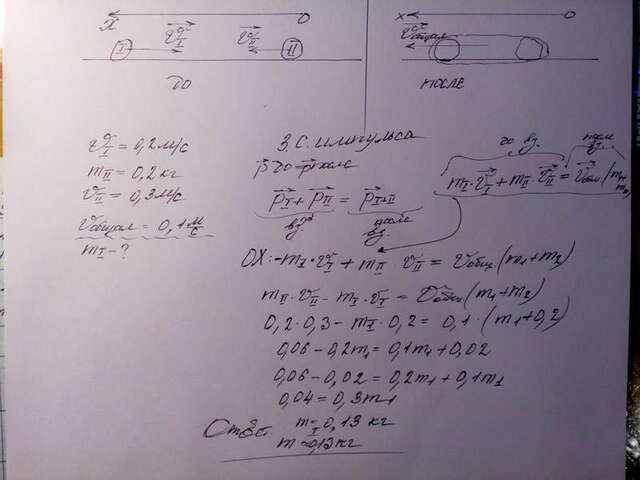 X O
I v⃗I v⃗II II
ДО
X O
v⃗общая
ПОСЛЕ
vI = 0,2 м/с
mII = 0,2 кг
vII = 0,3 м/с
vобщая = 0,1 м/с
mI - ?
З.С. импульса
p⃗до = p⃗после
p⃗I + p⃗II = p⃗I+II
вз после вз.
до вз. после вз
mI · v⃗I + mII · v⃗II = v⃗общ (m1+m2)
OX: -mI · vI + mII vII = vобщ. (m1+m2)
mII · vII - mI · vI = vобщ (m1+m2)
0,2 · 0,3 - mI · 0,2 = 0,1 · (m1+0,2)
0,06 - 0,2m1 = 0,1m1 + 0,02
0,06 - 0,02 = 0,2m1 + 0,1m1
0,04 = 0,3m1
Ответ: mI = 0,13 кг
m = 0,13 кг